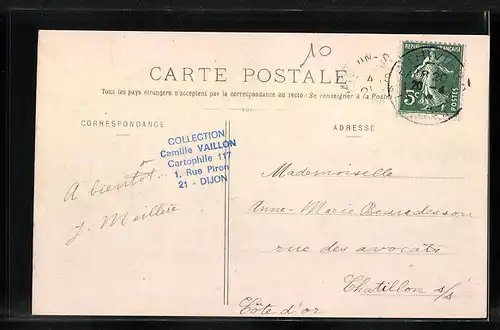 10
CARTE POSTALE
Tous les pays étrangers n'acceptent pas la correspondance au recto (Se renseigner à la Poste)
CORRESPONDANCE
ADRESSE
REPUBLIQUE FRANÇAISE
5c
POSTES
COLLECTION
Camille VAILLON
Cartophile 117
1, Rue Piron
21 - DIJON
A bientôt..
J. Meillère
Mademoiselle
Anne-Marie
rue des avocats
Chatillon s/s
Côte d'or